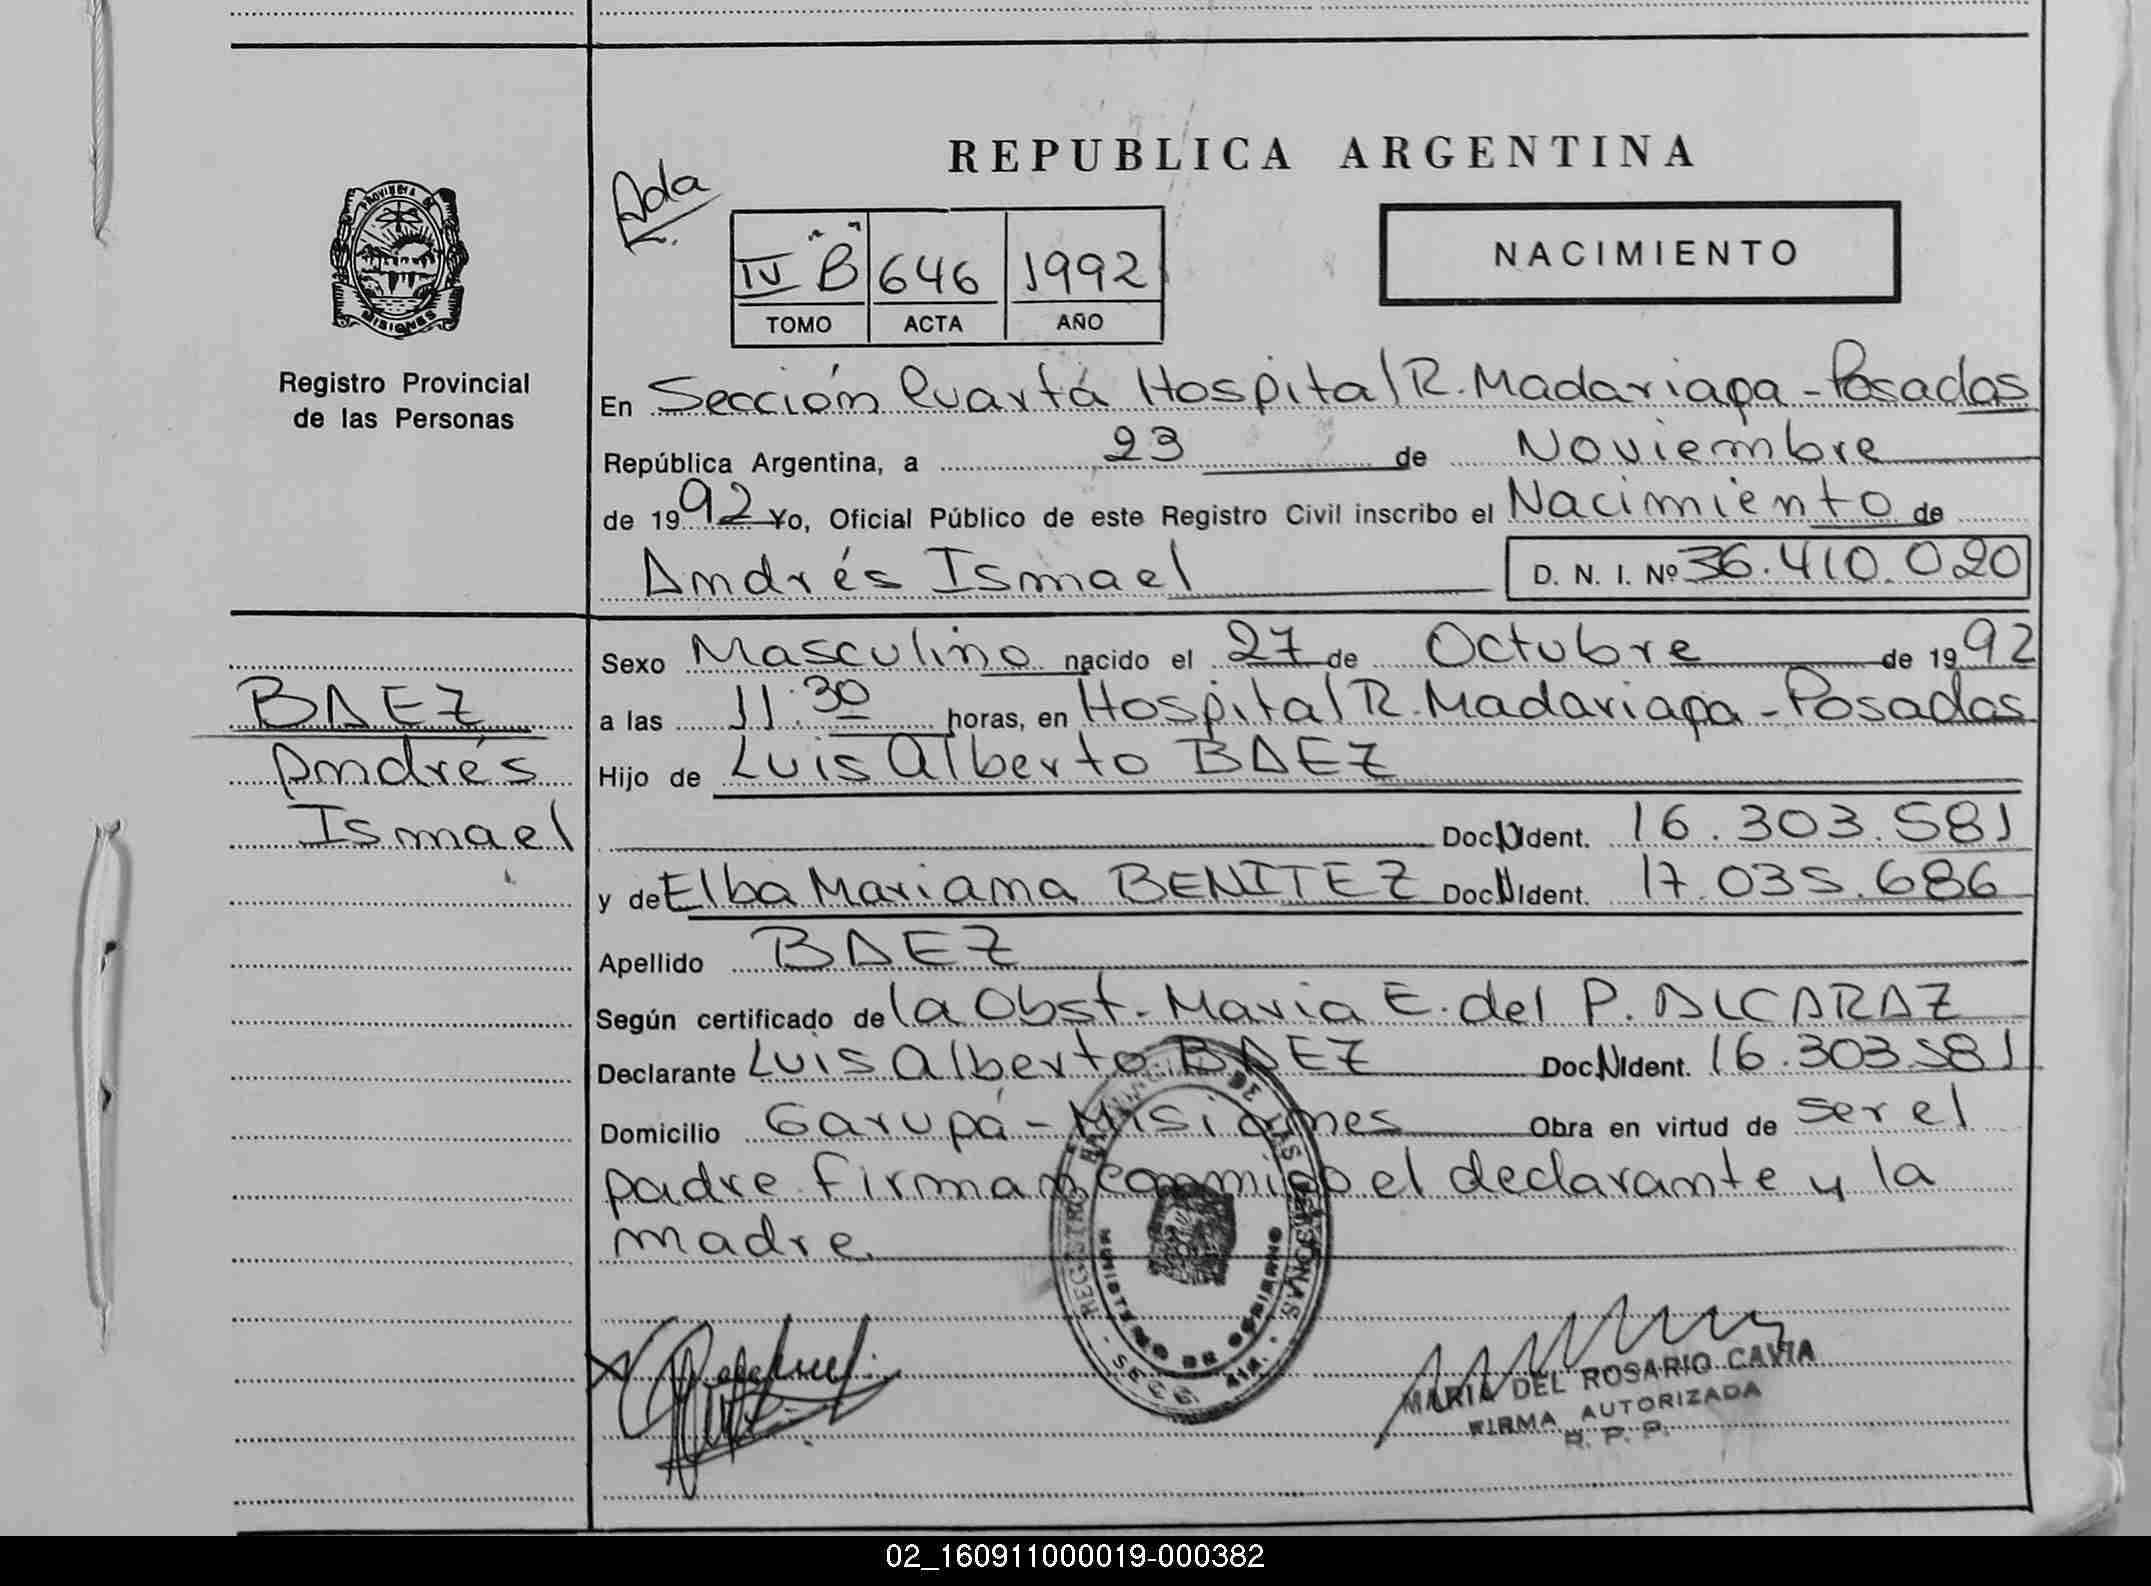 REPUBLICA ARGENTINA
NACIMIENTO
Ada
IV "B" 646 1992
TOMO ACTA AÑO
PROVINCIA DE
MISIONES
Registro Provincial
de las Personas
En Sección Cuarta Hospital R. Madariaga - Posadas
República Argentina, a 23 de Noviembre
de 1992 Yo, Oficial Público de este Registro Civil inscribo el Nacimiento de
Andrés Ismael D. N. I. Nº 36.410.020
BAEZ
Andrés
Ismael
Sexo Masculino nacido el 27 de Octubre de 1992
a las 11:30 horas, en Hospital R. Madariaga - Posadas
Hijo de Luis Alberto BAEZ
Doc.N.Ident. 16.303.581
y de Elba Mariana BENITEZ Doc.N.Ident. 17.035.686
Apellido BAEZ
Según certificado de la Obst. Maria E. del P. ALCARAZ
Declarante Luis Alberto BAEZ Doc.N.Ident. 16.303.581
Domicilio Garupá - Misiones Obra en virtud de ser el
padre firman conmigo el declarante y la
madre.
REGISTRO DE LAS PERSONAS
MINISTERIO DE GOBIERNO
SECC. 4ta.
MARIA DEL ROSARIO CAVIA
FIRMA AUTORIZADA
R. P. P.
02_160911000019-000382